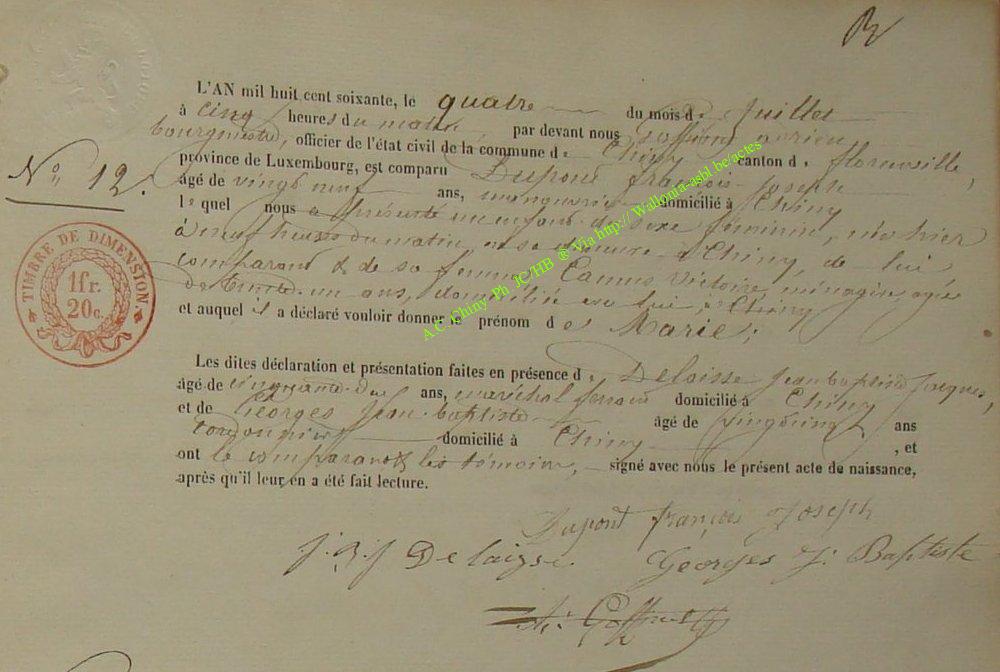 N
L'AN mil huit cent soixante, le quatre du mois de Juillet
à cinq heures du matin, par devant nous Goffinet adrien
bourgmestre, officier de l'état civil de la commune de Chiny canton de florenville,
N° 12.
province de Luxembourg, est comparu Dupont françois-Joseph
âgé de vingt neuf ans, domicilié à Chiny
lequel nous a présenté un enfant du sexe féminin, né hier
à neuf heures du matin, en sa à Chiny de lui
comparant & de sa femme Camus Victoire ménagère agée
de trente-un ans, domiciliée avec lui à Chiny
et auquel il a déclaré vouloir donner le prénom de Marie;
TIMBRE DE DIMENSION
1fr.
20c.
A.C. Chiny Ph JC/HB ® Via http:// Wallonia-asbl.be/actes
Les dites déclaration et présentation faites en présence de Deloisse Jean baptiste Jacques,
âgé de cinquante-deux ans, maréchal ferrant domicilié à Chiny
et de Georges Jean-baptiste âgé de vingt cinq ans
cordonnier domicilié à Chiny, et
ont le comparant & les témoins, signé avec nous le présent acte de naissance,
après qu'il leur en a été fait lecture.
Dupont françois Joseph
J. B. J Delaisse Georges J. Baptiste
Ad. Goffinet